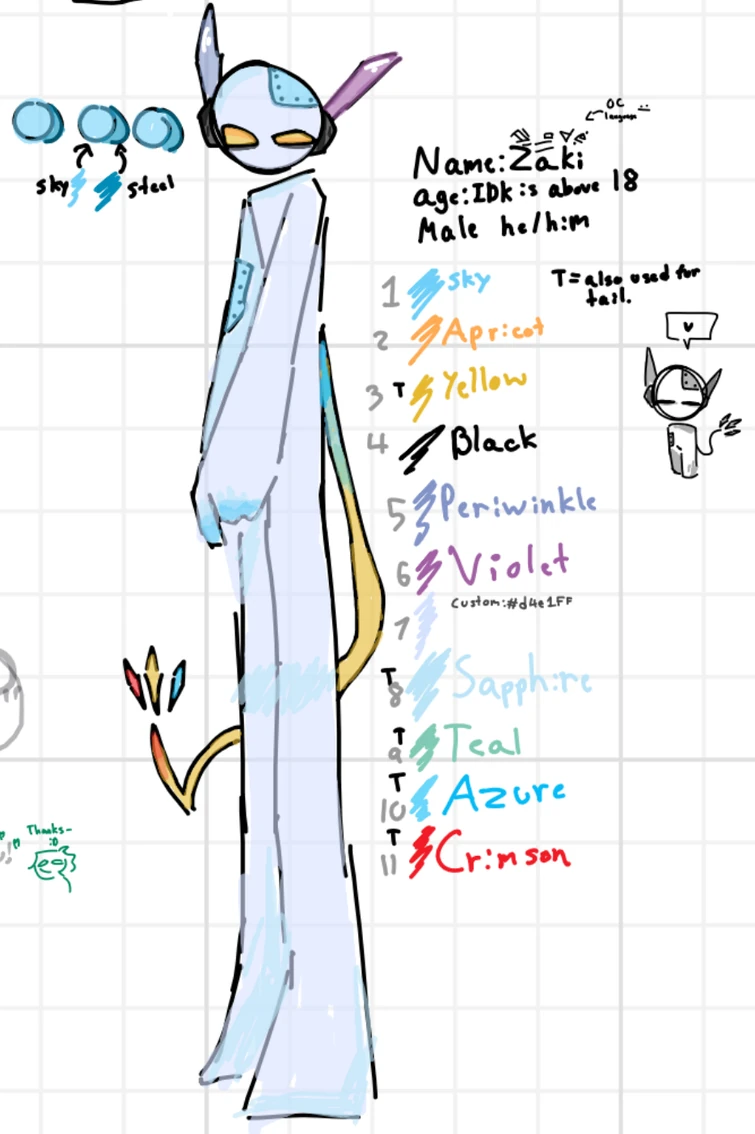 OC
language
Name: Zaki
age: IDK is above 18
Male he/him
sky
steel
T= also used for
tail.
1 sky
2 Apricot
3 T Yellow
4 Black
5 Periwinkle
6 Violet
Custom: #d4e1FF
7
T
8 Sapphire
T
9 Teal
T
10 Azure
T
11 Crimson
Thanks-
:D